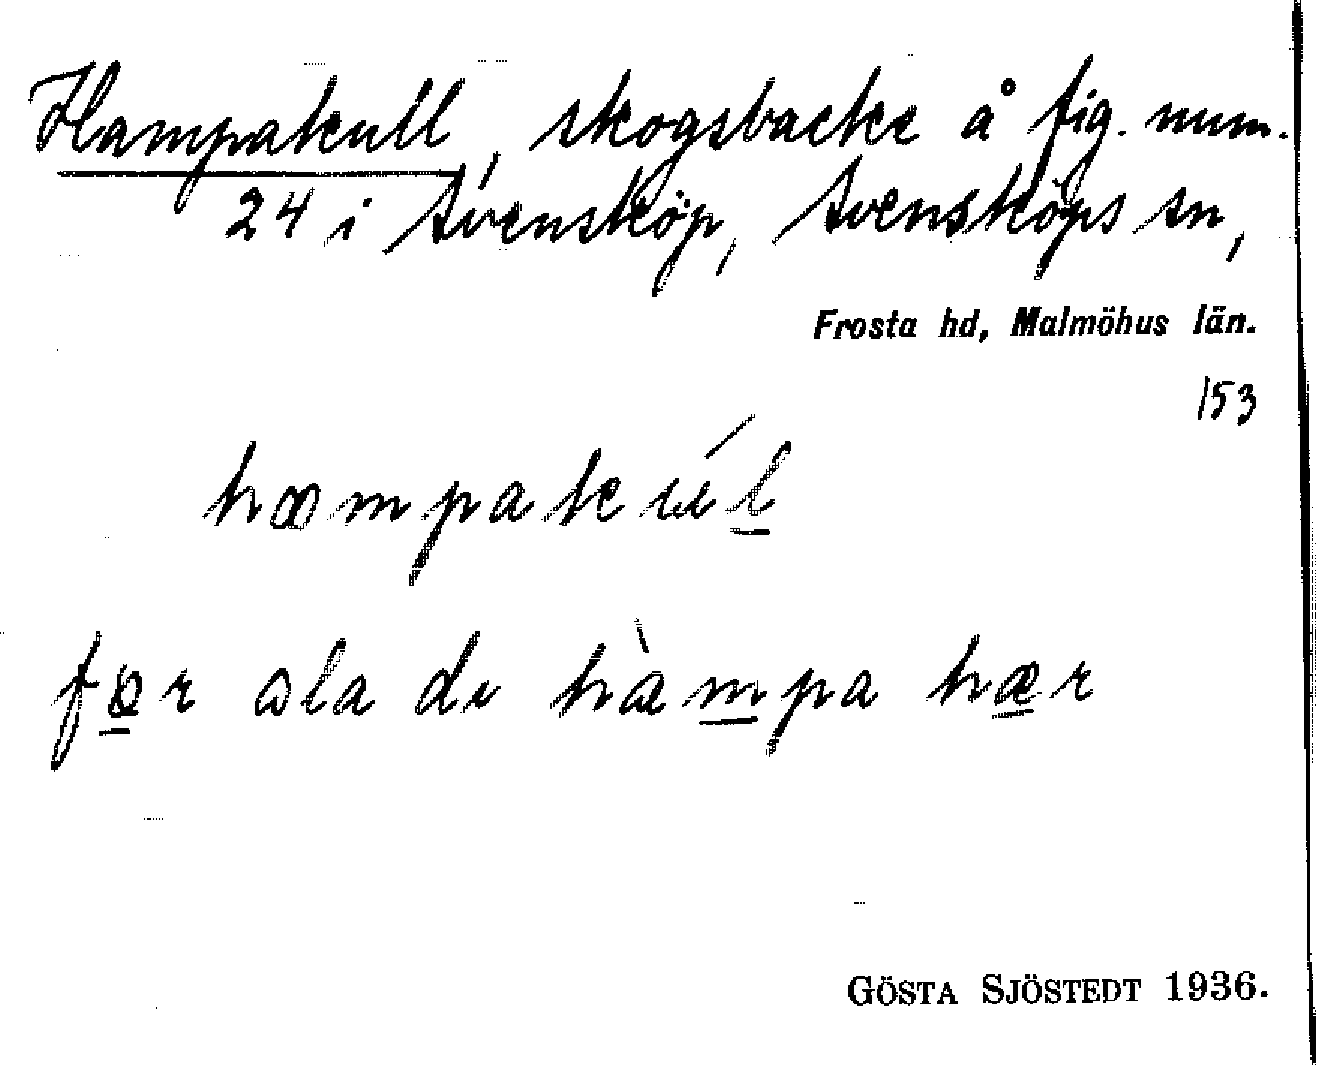 Hampakull, skogsbacke å fig. num.
24 i Svensköp, Svensköps sn,
Frosta hd, Malmöhus län.
153
hampakúl
før ola di hàmpa hær
GÖSTA SJÖSTEDT 1936.